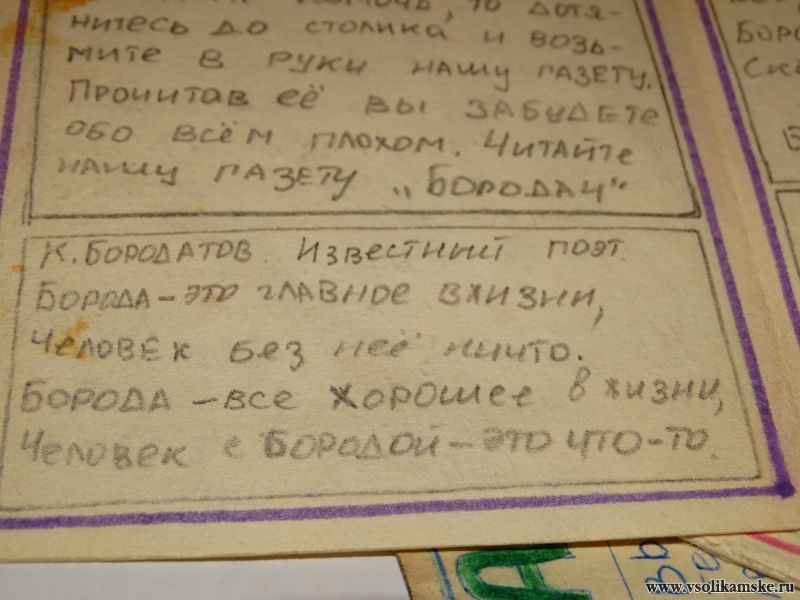 то дотя-
нитесь до столика и возь-
мите в руки нашу газету.
Прочитав её вы забудете
обо всём плохом. Читайте
нашу газету „Бородач“
К. Бородатов. Известный поэт.
Борода – это главное в жизни,
Человек без неё ничто.
Борода – все хорошее в жизни,
Человек с бородой – это что-то.
www.vsolikamske.ru